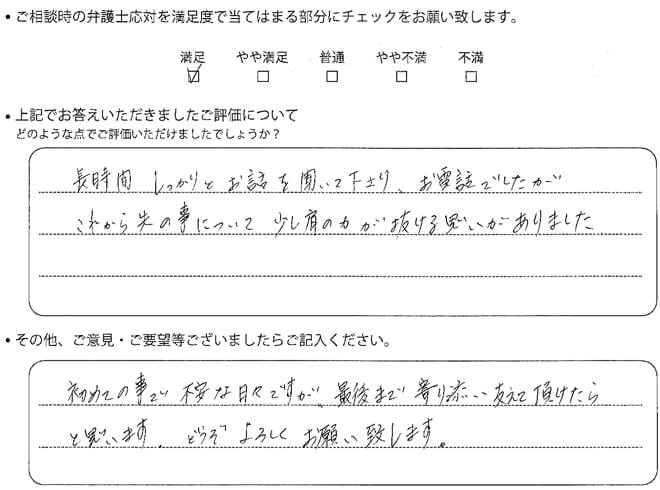 • ご相談時の弁護士応対を満足度で当てはまる部分にチェックをお願い致します。
満足 やや満足 普通 やや不満 不満
☑ □ □ □ □
• 上記でお答えいただきましたご評価について
どのような点でご評価いただけましたでしょうか？
長時間 しっかりと お話を聞いて下さり、お電話でしたが
これから先の事について 少し肩の力が抜ける思いがありました
• その他、ご意見・ご要望等ございましたらご記入ください。
初めての事で 不安な日々ですが、最後まで寄り添い支えて頂けたら
と思います。どうぞ よろしく お願い致します。